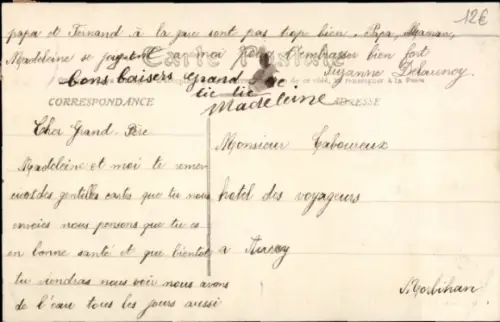 12€
papa et Fernand à la gare sont pas trop bien. Papa, Maman,
Madeleine se joignent à moi pour t'embrasser bien fort
Suzanne Delaunoy
Carte Postale
bons baisers Grand Père
tic tic
Madeleine
CORRESPONDANCE
ADRESSE
Cher Grand-Père
Madeleine et moi te remer
cions des gentilles cartes que tu nous
envoies nous pensons que tu es
en bonne santé et que bientot
tu viendras nous voir nous avons
de l'eau tous les jours aussi
Monsieur
hotel des voyageurs
a
Morbihan